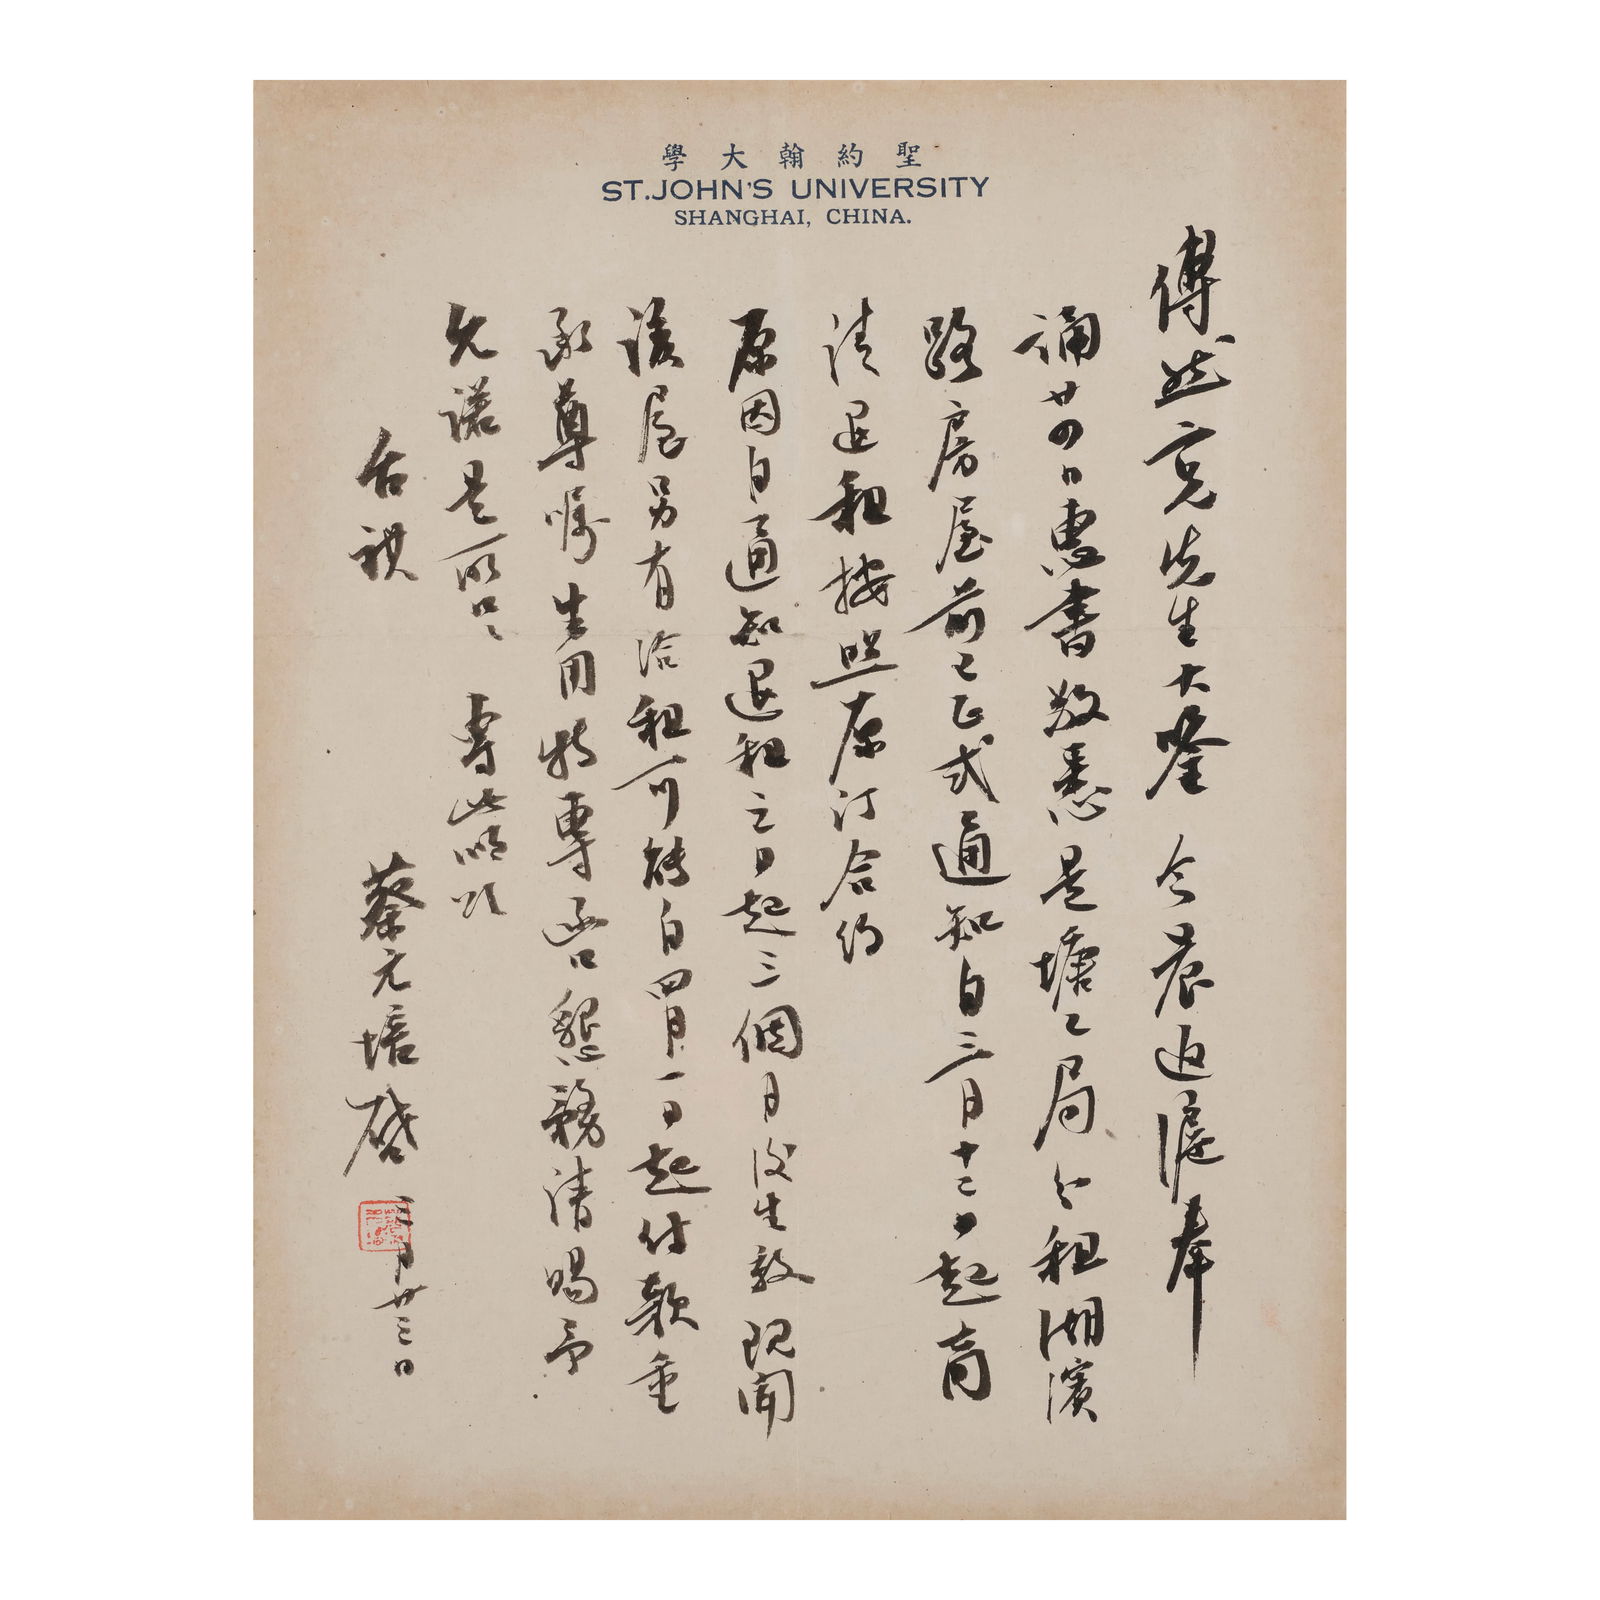 聖約翰大學
ST.JOHN'S UNIVERSITY
SHANGHAI, CHINA.
傅然亮先生大鑒 今晨返滬奉
誦廿四日惠書敬悉是塘工局分租湖濱
路房屋前已正式通知自三月十二日起商
請退租按照原訂合約
原因自通知退租之日起三個月後生效現聞
該屋另有洽租可能自四月一日起付款重
承尊囑生因特專函口懇務請賜予
允諾是所 專此 頌
台祺
蔡元培啟
三月廿三日